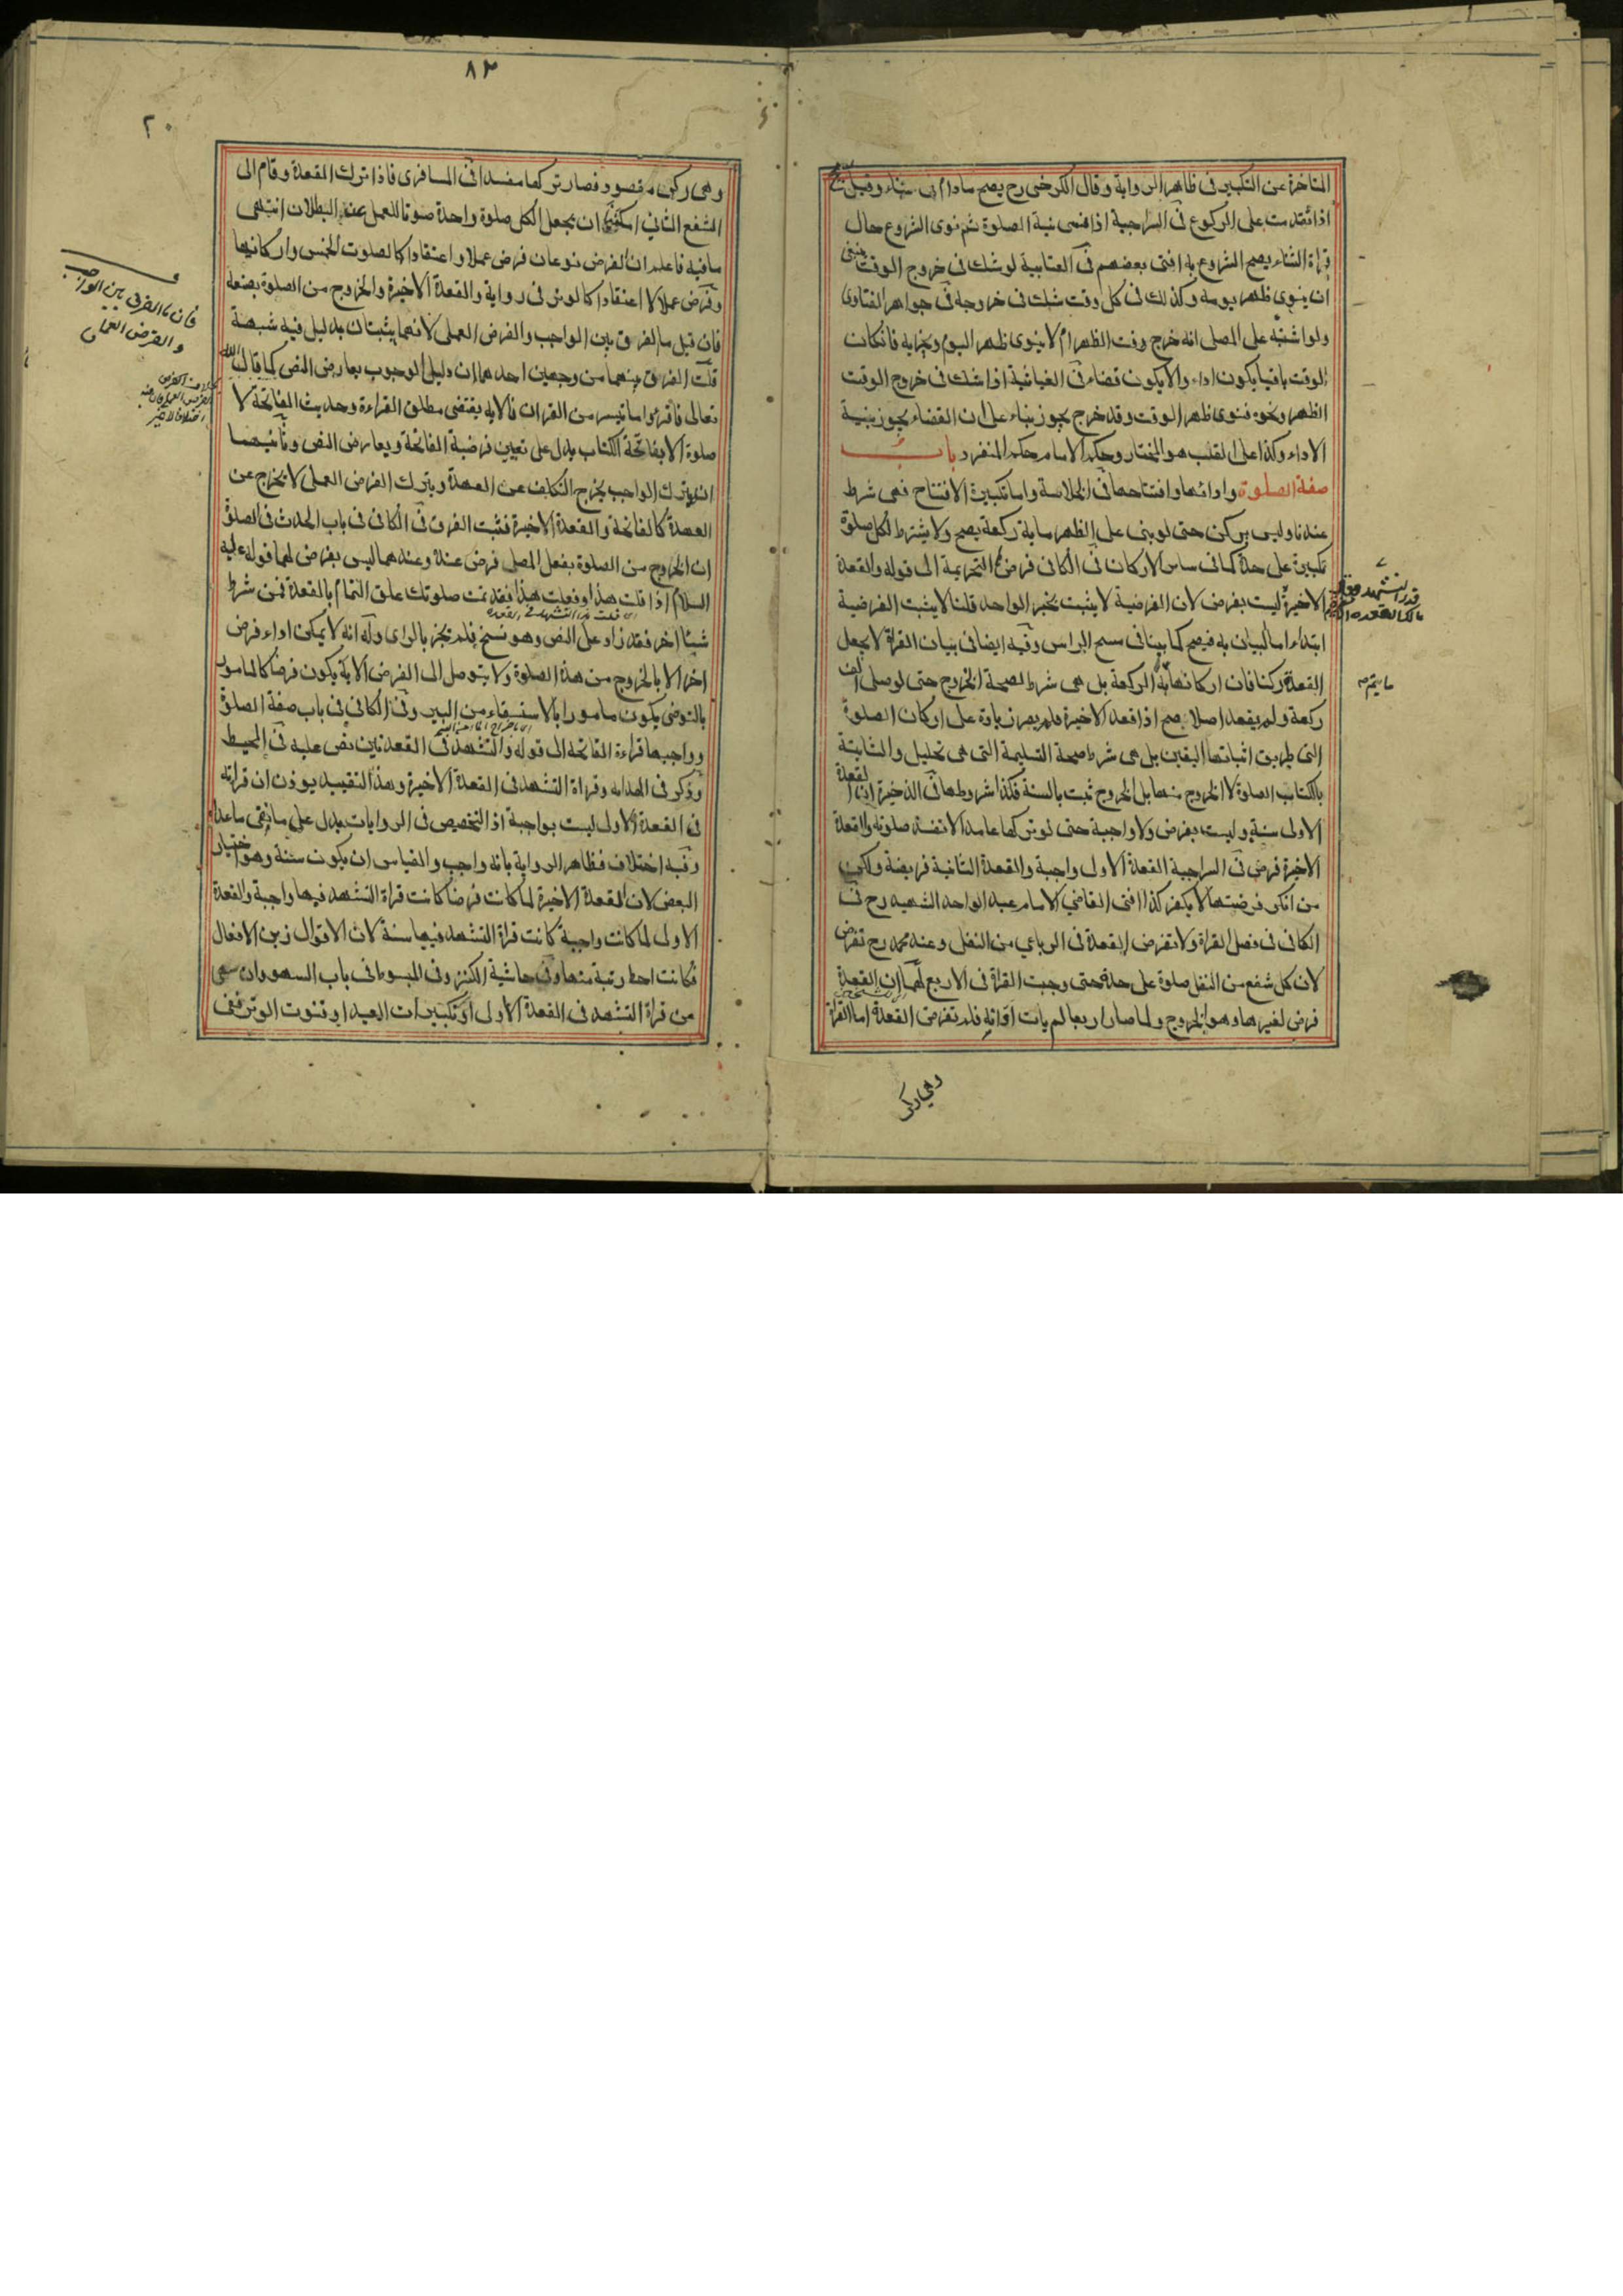 المتاخرة عن التكبير فى ظاهر الرواية وقال الكرخى رح يصح مادام فى ثناء وقيل يصح
اذا تقدمت على الركوع فى السراجية اذا نسى نية الصلوة ثم نوى الشروع حال
قراة الثناء يصح الشروع به افتى بعضهم فى العتابية لو شك فى خروج الوقت ينبغى
ان ينوى ظهر يومه وكذلك فى كل وقت شك فى خروجه فى جواهر الفتاوى
ولو اشتبه على المصلى انه خرج وقت الظهر ام لا ينوى ظهر اليوم ويجزيه فان كان
الوقت باقيا يكون اداء والا يكون قضاء فى الغياثية اذا شك فى خروج الوقت
الظهر ونحوه فنوى ظهر الوقت وقد خرج يجوز بناء على ان القضاء يجوز بنية
الاداء وكذا على القلب هو المختار وحكم الامام حكم المنفرد باب
صفة الصلوة وادائها وافتتاحها فى الخلاصة واما تكبيرة الافتتاح فهى شرط
عندنا وليس بركن حتى لو بنى على الظهر ماية ركعة يصح ولا يشترط لكل صلوة
تكبيرة على حدة كما فى ساير الاركان فى الكافى فرضها التحريمة الى قوله والقعدة
الاخيرة ليست بفرض لان الفرضية لا يثبت بخبر الواحد قلنا لا يثبت الفرضية
ابتداء اما البيان به فيصح كما بينا فى مسح الراس وفيه ايضا فى بيان القراة لا يجعل
القعدة ركنا فان اركانها الركعة بل هى شرط لصحة الخروج حتى لو صلى الف
ركعة ولم يقعد اصلا يصح اذا قعد الاخيرة فلم يصر زيادة على اركان الصلوة
التى طريق اثباتها اليقين بل هى شرط صحة التسليمة التى هى تحليل والثابتة
بالكتاب الصلوة لا الخروج منها بل الخروج ثبت بالسنة فكذا شروطها فى الذخيرة ان القعدة
الاولى سنية وليست بفرض ولا واجبة حتى لو تركها عامدا لا تفسد صلوته والقعدة
الاخيرة فرض فى السراجية القعدة الاولى واجبة والقعدة الثانية فريضة ولكن
من انكر فرضيتها لا يكفر كذا افتى القاضى الامام عبد الواحد الشهيد رح فى
الكافى فى فصل القراة ولا تفرض القعدة فى الرباعى من النفل وعند محمد رح تفرض
لان كل شفع من النفل صلوة على حدة حتى وجبت القراة فى الاربع لهما ان القعدة
فرض لغيرها وهو الخروج ولما صار اربعا لم يات اوانه فلم تفرض القعدة اما القراة
وهى ركن
٨٣
٢٠
وهى ركن مقصود فصار تركها مفسدا فى المسافرى فاذا ترك القعدة وقام الى
الشفع الثانى امكننا ان يجعل الكل صلوة واحدة صونا للعمل عن البطلان انتهى
مافيه فاعلم ان الفرض نوعان فرض عملا واعتقادا كالصلوت الخمس واركانها
وفرض عملا لا اعتقادا كالوتر فى رواية والقعدة الاخيرة والخروج من الصلوة بصنعه
فان قيل ما الفرق بين الواجب والفرض العملى لانهما يثبتان بدليل فيه شبهة
قلت الفرق بينهما من وجهين احدهما ان دليل الوجوب يعارض النص كما قال الله
تعالى فاقرؤا ما تيسر من القران فالاية يقتضى مطلق القراءة وحديث الفاتحة لا
صلوة الا بفاتحة الكتاب يدل على تعيين فرضية الفاتحة ويعارض النص وثانيهما
ان بترك الواجب يخرج التكليف عن العهدة وبترك الفرض العملى لا يخرج عن
العهدة كالفاتحة والقعدة الاخيرة فثبت الفرق فى الكافى فى باب الحدث فى الصلوة
ان الخروج من الصلوة بفعل المصلى فرض عنده وعندهما ليس بفرض لهما قوله عليه
السلام اذا قلت هذا او فعلت هذا فقد تمت صلوتك علق التمام بالقعدة فمن شرط
شيئا اخر فقد زاد على النص وهو نسخ فلم يجز بالراى وله انه لا يمكن اداء فرض
اخر الا بالخروج من هذه الصلوة ولا يتوصل الى الفرض الا به يكون فرضا كالمامور
بالتوضى يكون مامورا بالاستسقاء من البير وفى الكافى فى باب صفة الصلوة
وواجبها قراءة الفاتحة الى قوله والتشهد فى القعدتين نص عليه فى المحيط
وذكر فى الهداية وقراة التشهد فى القعدة الاخيرة وهذا التقييد يوذن ان قراته
فى القعدة الاولى ليست بواجبة اذ التخصيص فى الروايات يدل على ما نفى ماعداه
وفيه اختلاف فظاهر الرواية بانه واجب والقياس ان يكون سنة وهو اختيار
البعض لان القعدة الاخيرة لما كانت فرضا كانت قراة التشهد فيها واجبة والقعدة
الاولى لما كانت واجبة كانت قراة التشهد فيها سنة لان الاقوال زين الافعال
فكانت احط رتبة منها وفى حاشية الكنز وفى المبسوط فى باب السهو وان سهى
عن قراة التشهد فى القعدة الاولى او تكبيرات العيد او قنوت الوتر ففى
فان ما الفرق بين الواجب
والفرض العملى